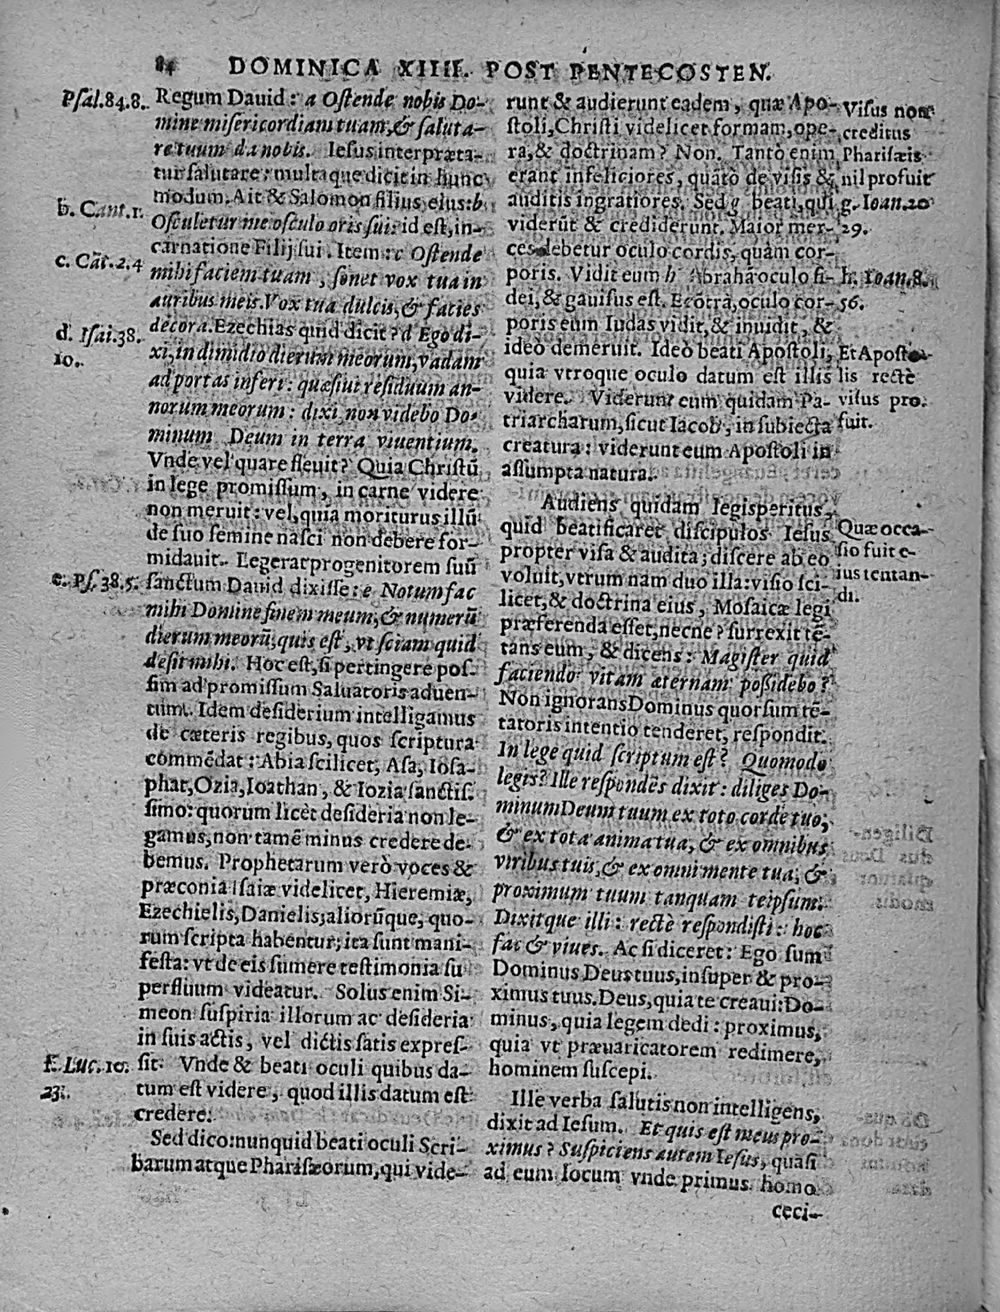 84 DOMINICA XIIII. POST PENTECOSTEN.
Psal.84.8.
b. Cant.1.
c. Cãt.2.4
d. Isai.38.
10.
e. Ps.38.5.
f. Luc.10.
23.
Regum Dauid: a Ostende nobis Do-
mine misericordiam tuam, & saluta-
re tuum da nobis. Iesus interpræta-
tur salutare: multaque dicit in hunc
modum. Ait & Salomon filius eius: b
Osculetur me osculo oris sui: id est, in-
carnatione Filij sui. Item: c Ostende
mihi faciem tuam, sonet vox tua in
auribus meis. Vox tua dulcis, & facies
decora. Ezechias quid dicit? d Ego di-
xi, in dimidio dierum meorum, vadam
ad portas inferi: quæsiui residuum an-
norum meorum: dixi, non videbo Do-
minum Deum in terra viuentium.
Vnde vel quare fleuit? Quia Christũ
in lege promissum, in carne videre
non meruit: vel, quia moriturus illũ
de suo semine nasci non debere for-
midauit. Legerat progenitorem suũ
sanctum Dauid dixisse: e Notum fac
mihi Domine finem meum, & numerũ
dierum meorũ, quis est, vt sciam quid
desit mihi. Hoc est, si pertingere pos-
sim ad promissum Saluatoris aduen-
tum. Idem desiderium intelligamus
de cæteris regibus, quos scriptura
commẽdat: Abia scilicet, Asa, Iosa-
phat, Ozia, Ioathan, & Iozia sanctis-
simo: quorum licèt desideria non le-
gamus, non tamẽ minus credere de-
bemus. Prophetarum verò voces &
præconia Isaiæ videlicet, Hieremiæ,
Ezechielis, Danielis, aliorũque, quo-
rum scripta habentur; ita sunt mani-
festa: vt de eis sumere testimonia su
perfluum videatur. Solus enim Si-
meon suspiria illorum ac desideria
in suis actis, vel dictis satis expres-
sit. Vnde & beati oculi quibus da-
tum est videre, quod illis datum est
credere.
Sed dico: nunquid beati oculi Scri-
barum atque Pharisæorum, qui vide-
runt & audierunt eadem, quæ Apo-
stoli, Christi videlicet formam, ope-
ra, & doctrinam? Non. Tantò enim
erant infeliciores, quãtò de visis &
auditis ingratiores. Sed g beati, qui
viderũt & crediderunt. Maior mer-
ces debetur oculo cordis, quàm cor-
poris. Vidit eum h Abrahã oculo fi-
dei, & gauisus est. Ecõtrà, oculo cor-
poris eum Iudas vidit, & inuidit, &
ideò demeruit. Ideò beati Apostoli,
quia vtroque oculo datum est illis
videre. Viderunt eum quidam Pa-
triarcharum, sicut Iacob, in subiecta
creatura: viderunt eum Apostoli in
assumpta natura.
Audiens quidam legisperitus,
quòd beatificaret discipulos Iesus
propter visa & audita; discere ab eo
voluit, vtrum nam duo illa: visio sci-
licet, & doctrina eius, Mosaicæ legi
præferenda esset, necne? surrexit tẽ-
tans eum, & dicens: Magister quid
faciendo vitam æternam possidebo?
Non ignorans Dominus quorsum tẽ-
tatoris intentio tenderet, respondit.
In lege quid scriptum est? Quomodo
legis? Ille respondẽs dixit: diliges Do-
minum Deum tuum ex toto corde tuo,
& ex tota anima tua, & ex omnibus
viribus tuis, & ex omni mente tua, &
proximum tuum tanquam teipsum.
Dixitque illi: rectè respondisti: hoc
fac & viues. Ac si diceret: Ego sum
Dominus Deus tuus, insuper & pro-
ximus tuus. Deus, quia te creaui: Do-
minus, quia legem dedi: proximus,
quia vt præuaricatorem redimere,
hominem suscepi.
Ille verba salutis non intelligens,
dixit ad Iesum. Et quis est meus pro-
ximus? Suspiciens autem Iesus, quasi
ad eum locum vnde primus homo
ceci-
Visus non
creditus
Pharisæis
nil profuit
g. Ioan.20
29.
h. Ioan.8.
56.
Et Aposto-
lis rectè
visus pro-
fuit.
Quæ occa-
sio fuit e-
ius tentan-
di.